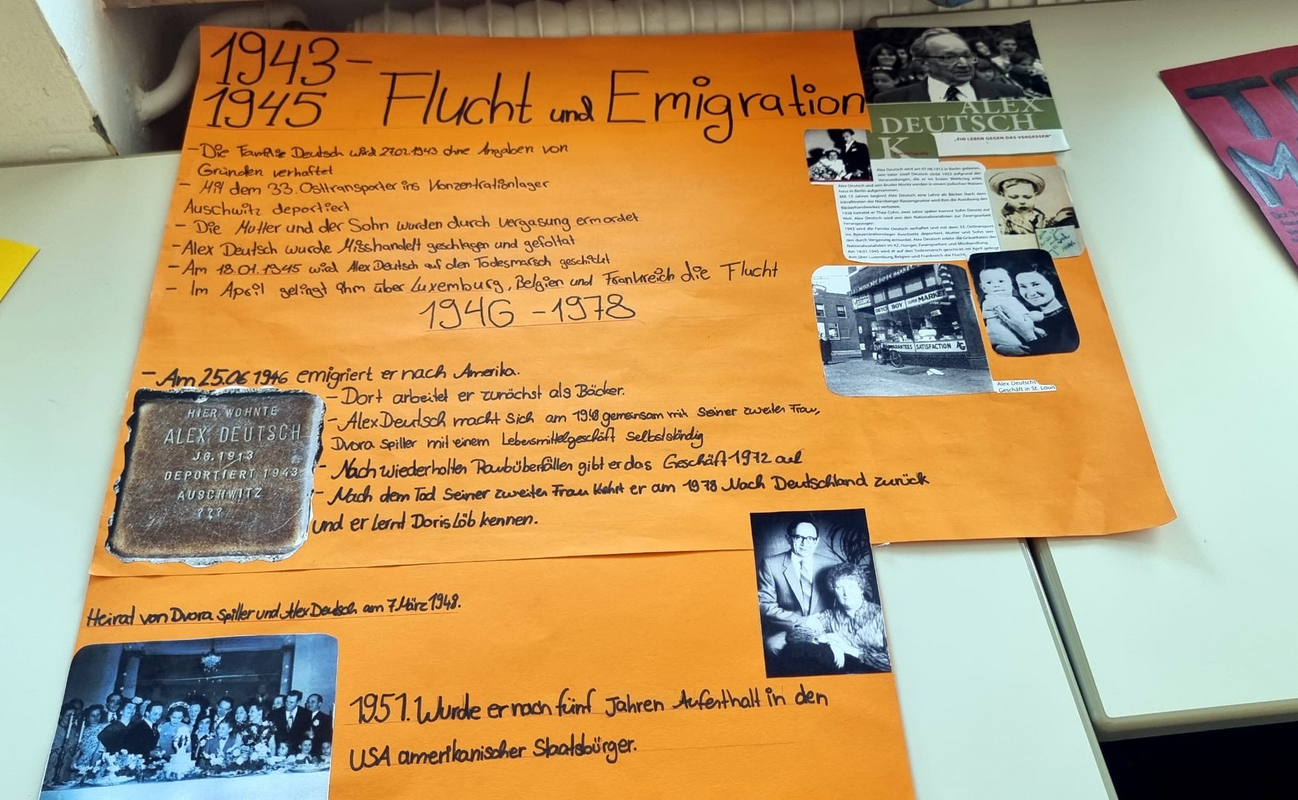 1943-
1945 Flucht und Emigration
- Die Familie Deutsch wird 27.02.1943 ohne Angaben von
Gründen verhaftet
- Mit dem 33. Osttransporter ins Konzentrationlager
Auschwitz deportiert
- Die Mutter und der Sohn wurden durch vergasung ermordet.
- Alex Deutsch wurde Misshandelt geschlagen und gefoltat
- Am 18.01.1945 wird Alex Deutsch auf den Todesmarsch geschickt
- Im April gelingt ihm über Luxemburg, Belgien und Frankreich die Flucht
1946 - 1978
- Am 25.06 1946 emigriert er nach Amerika.
- Dort arbeitet er zunächst als Bäcker.
- Alex Deutsch macht sich am gemeinsam mit Seiner zweiten Frau,
Dvora Spiller mit einem Lebensmittelgeschäft Selbstständig
- Nach wiederholten Raubüberfällen gibt er das Geschäft 1972 auf
- Nach dem Tod Seiner zweiten Frau kehrt er am 1978 Nach Deutschland zurück
und er lernt Doris Löb kennen.
HIER WOHNTE
ALEX DEUTSCH
JG. 1913
DEPORTIERT 1943
AUSCHWITZ
???
Heirat von Dvora Spiller und Alex Deutsch am 7. März 1948.
1951. Wurde er nach fünf Jahren Aufenthalt in den
USA amerikanischer Staatsbürger.
ALEX
DEUTSCH
„EIN LEBEN GEGEN DAS VERGESSEN"
K
MARKET
BOY MARKET
GUARANTEES SATISFACTION AG
Alex Deutschs
Geschäft in St. Louis
TO
M